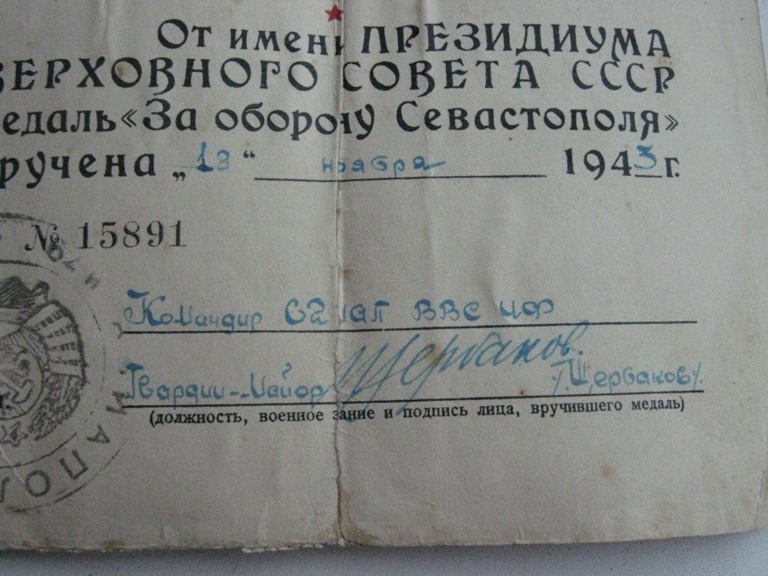 От имени ПРЕЗИДИУМА
ВЕРХОВНОГО СОВЕТА СССР
едаль «За оборону Севастополя»
ручена „13“ ноября 1943 г.
№ 15891
Командир 62 иап ВВС ЧФ
Гвардии-Майор Щербаков. /Щербаков/.
(должность, военное звание и подпись лица, вручившего медаль)